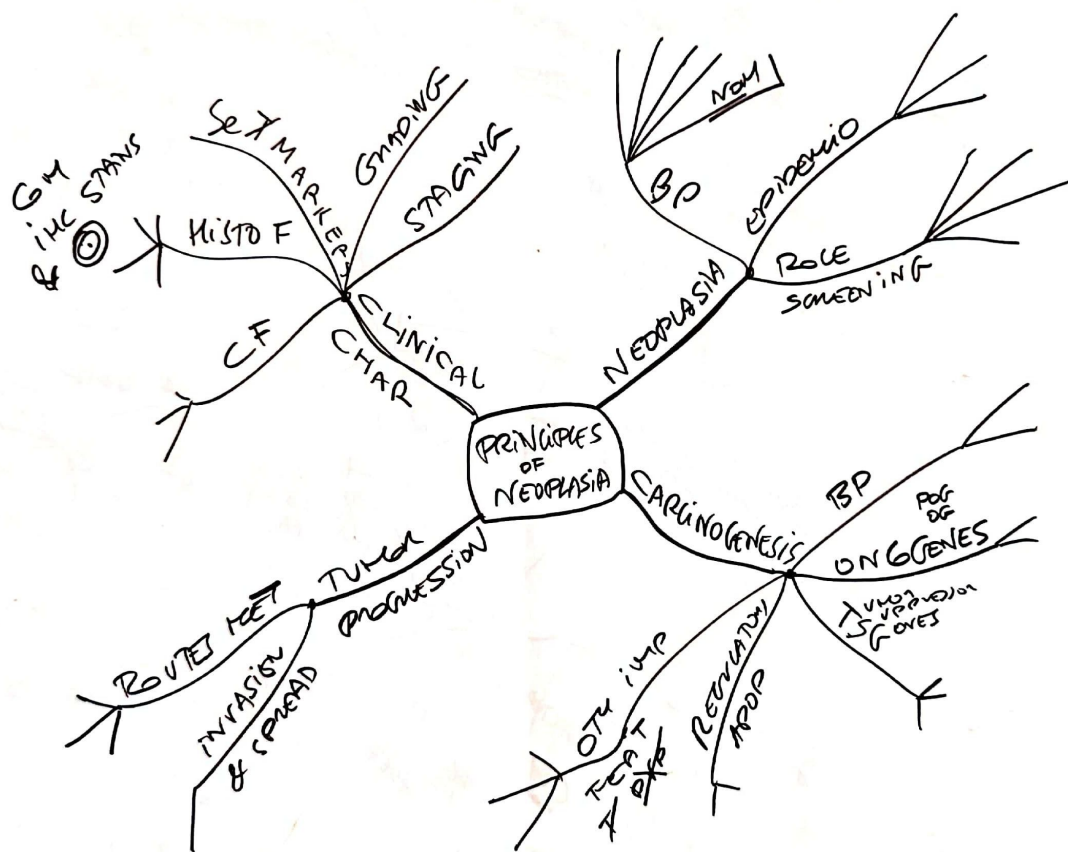 PRINCIPLES
OF
NEOPLASIA
NEOPLASIA
BP
NOM
EPIDEMIO
ROLE
SCREENING
CARCINOGENESIS
BP
ONGOGENES
POG
OG
TUMOR
SUPPRESSOR
GENES
REGULATORY
APOP
OTH IMP
TUMOR
PROGRESSION
ROUTES MET
INVASION
& SPREAD
CLINICAL
CHAR
CF
HISTO F
GM
IHC STANS
&
SEX MARKERS
GRADING
STAGING